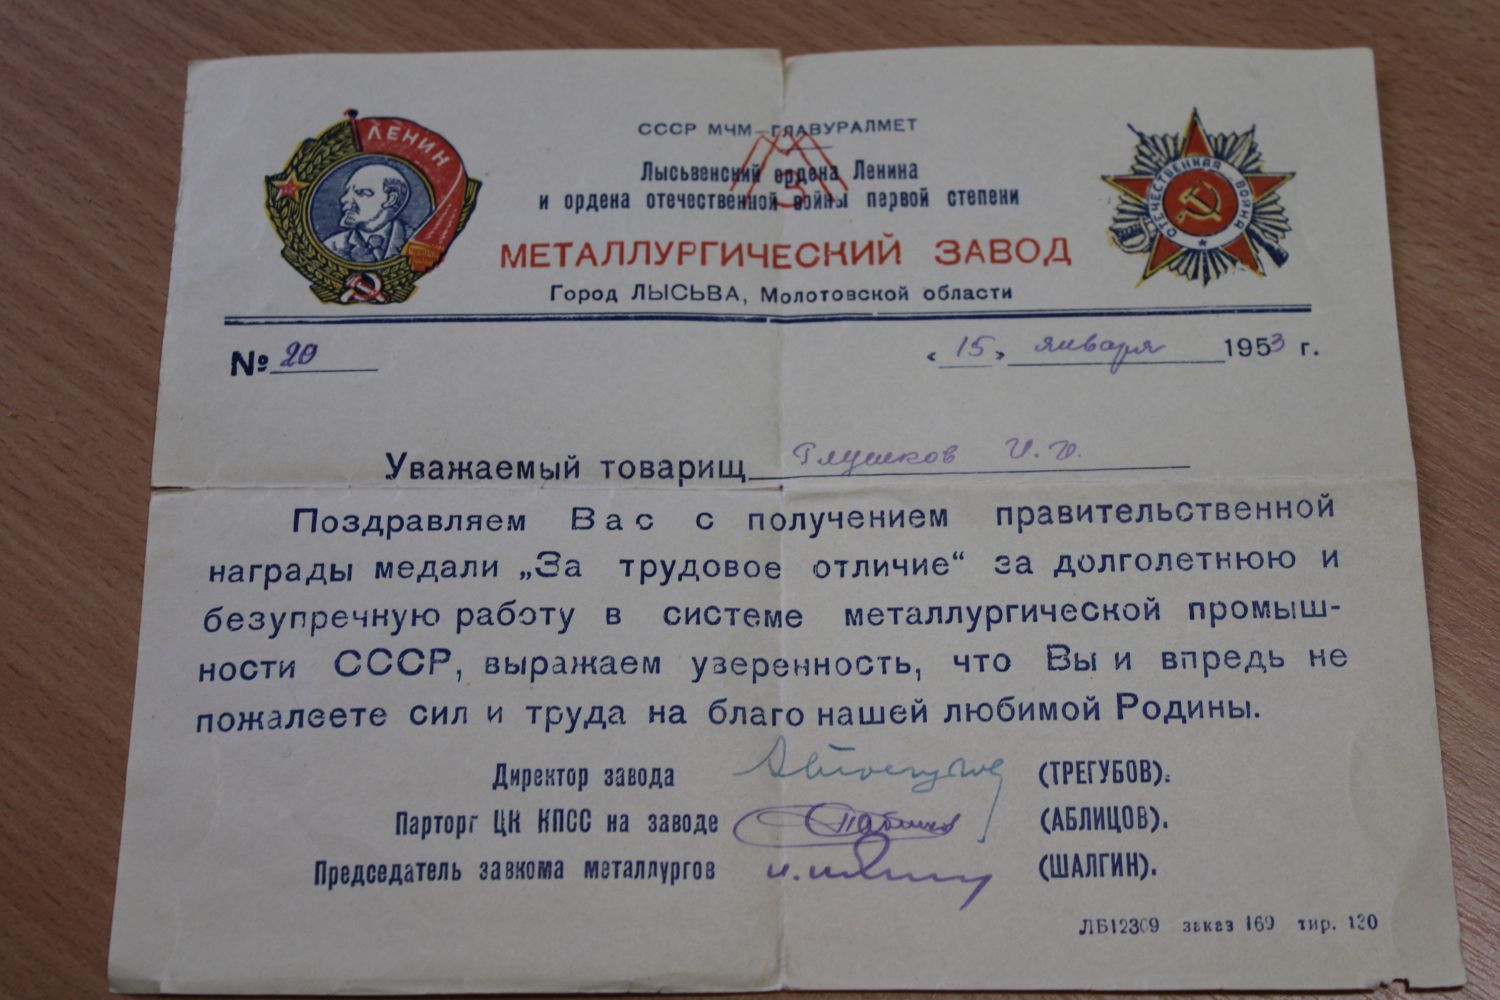 ЛЕНИН
СССР МЧМ—ГЛАВУРАЛМЕТ
Лысьвенский ордена Ленина
и ордена отечественной войны первой степени
МЕТАЛЛУРГИЧЕСКИЙ ЗАВОД
Город ЛЫСЬВА, Молотовской области
ОТЕЧЕСТВЕННАЯ ВОЙНА
№ 20
« 15 » января 1953 г.
Уважаемый товарищ Глушков И.
Поздравляем Вас с получением правительственной
награды медали „За трудовое отличие“ за долголетнюю и
безупречную работу в системе металлургической промыш-
ности СССР, выражаем уверенность, что Вы и впредь не
пожалеете сил и труда на благо нашей любимой Родины.
Директор завода (ТРЕГУБОВ).
Парторг ЦК КПСС на заводе (АБЛИЦОВ).
Председатель завкома металлургов (ШАЛГИН).
ЛБ12309 заказ 169 тир. 130